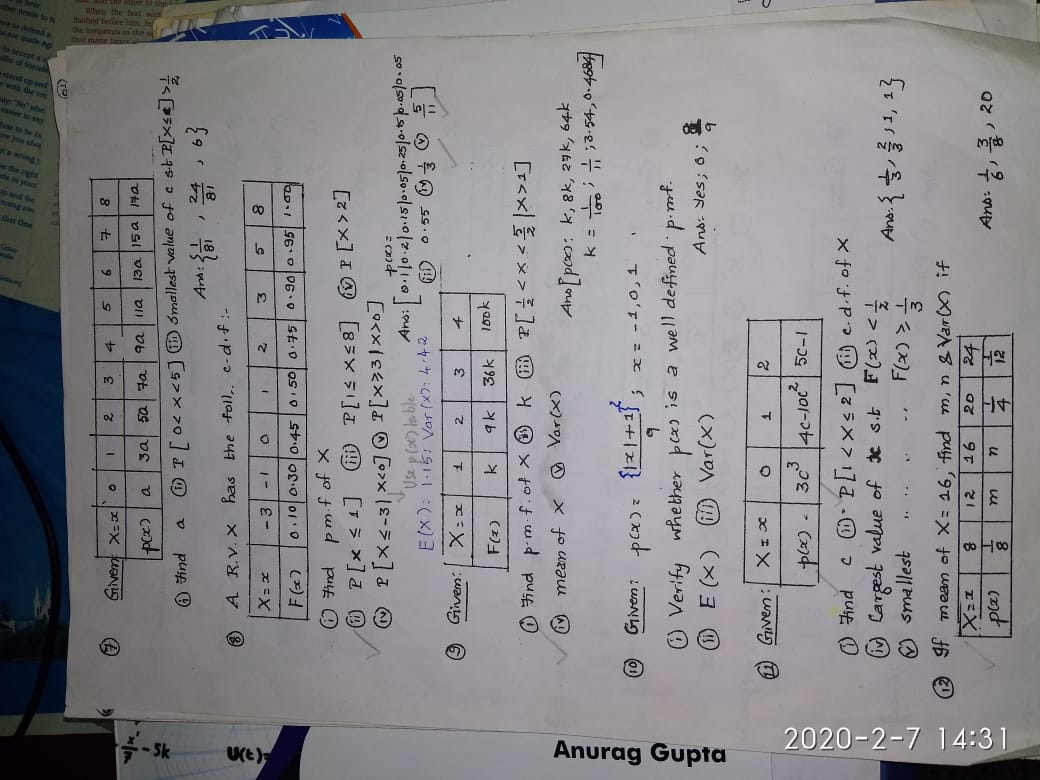 01
⑦ Given: X=x 0 1 2 3 4 5 6 7 8
p(x) a 3a 5a 7a 9a 11a 13a 15a 17a
ⓘ Find a ⓘⓘ P[0<X<5] ⓘⓘⓘ Smallest value of c s.t P[X≤c] > 1/2
Ans: {1/81, 24/81, 6}
⑧ A R.V. X has the foll.. c.d.f :-
X=x -3 -1 0 1 2 3 5 8
F(x) 0.10 0.30 0.45 0.50 0.75 0.90 0.95 1.00
(i) Find p.m.f of X
(ii) P[X ≤ 1] (iii) P[1≤ X≤8] (iv) P[X>2]
(iv) P[X≤-3| X<0] (v) P[X≥3|X>0]
Use p(x) table
p(x)=
Ans: [0.1|0.2|0.15|0.05|0.25|0.15|0.05|0.05
E(X): 1.15; Var(X): 4.42
(iii) 0.55 (iv) 1/3 (v) 5/11]
⑨ Given: X=x 1 2 3 4
F(x) k 9k 36k 100k
(i) Find p.m.f. of X (ii) k (iii) P[1/2 < X < 5/2 | X>1]
(iv) mean of X (v) Var(X)
Ans [p(x): k, 8k, 27k, 64k
k = 1/100; 1/11; 3.54, 0.4684]
⑩ Given: p(x) = {|x|+1}²/9; x = -1,0,1
(i) Verify whether p(x) is a well defined p.mf.
(ii) E(X) (iii) Var(X)
Ans: Yes; 0; 8/9
⑪ Given: X=x 0 1 2
p(x) 3c³ 4c-10c² 5c-1
(i) Find c (ii) P[1<X≤2] (iii) c.d.f. of X
(iv) Largest value of x s.t F(x) < 1/2
(v) smallest .. .. .. .. F(x) ≥ 1/3
Ans. {1/3, 2/3, 1, 1}
⑫ If mean of X = 16, find m, n & Var(X) if
X=x 8 12 16 20 24
p(x) 1/8 m n 1/4 1/12
Ans: 1/6, 3/8, 20
Anurag Gupta
2020-2-7 14:31